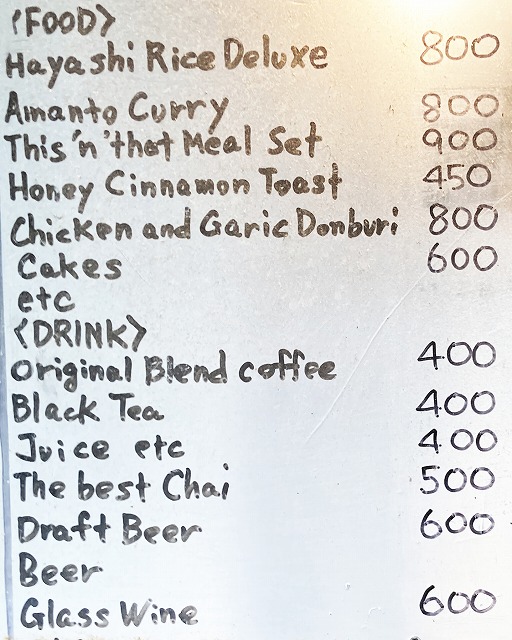 〈FOOD〉
Hayashi Rice Deluxe 800
Amanto Curry 800
This 'n' that Meal Set 900
Honey Cinnamon Toast 450
Chicken and Garic Donburi 800
Cakes 600
etc
〈DRINK〉
Original Blend coffee 400
Black Tea 400
Juice etc 400
The best Chai 500
Draft Beer 600
Beer
Glass Wine 600